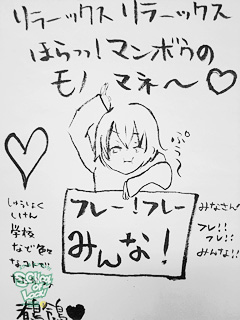 リラーックス リラーックス
ほらっっ!マンボウの
モノ マネ〜♡
ぷぅ〜
フレー!フレー
みんな!
しゅうしょく
しけん
学校
など色々
なコトで
みなさん
フレ!!
フレ!!
みんな!!